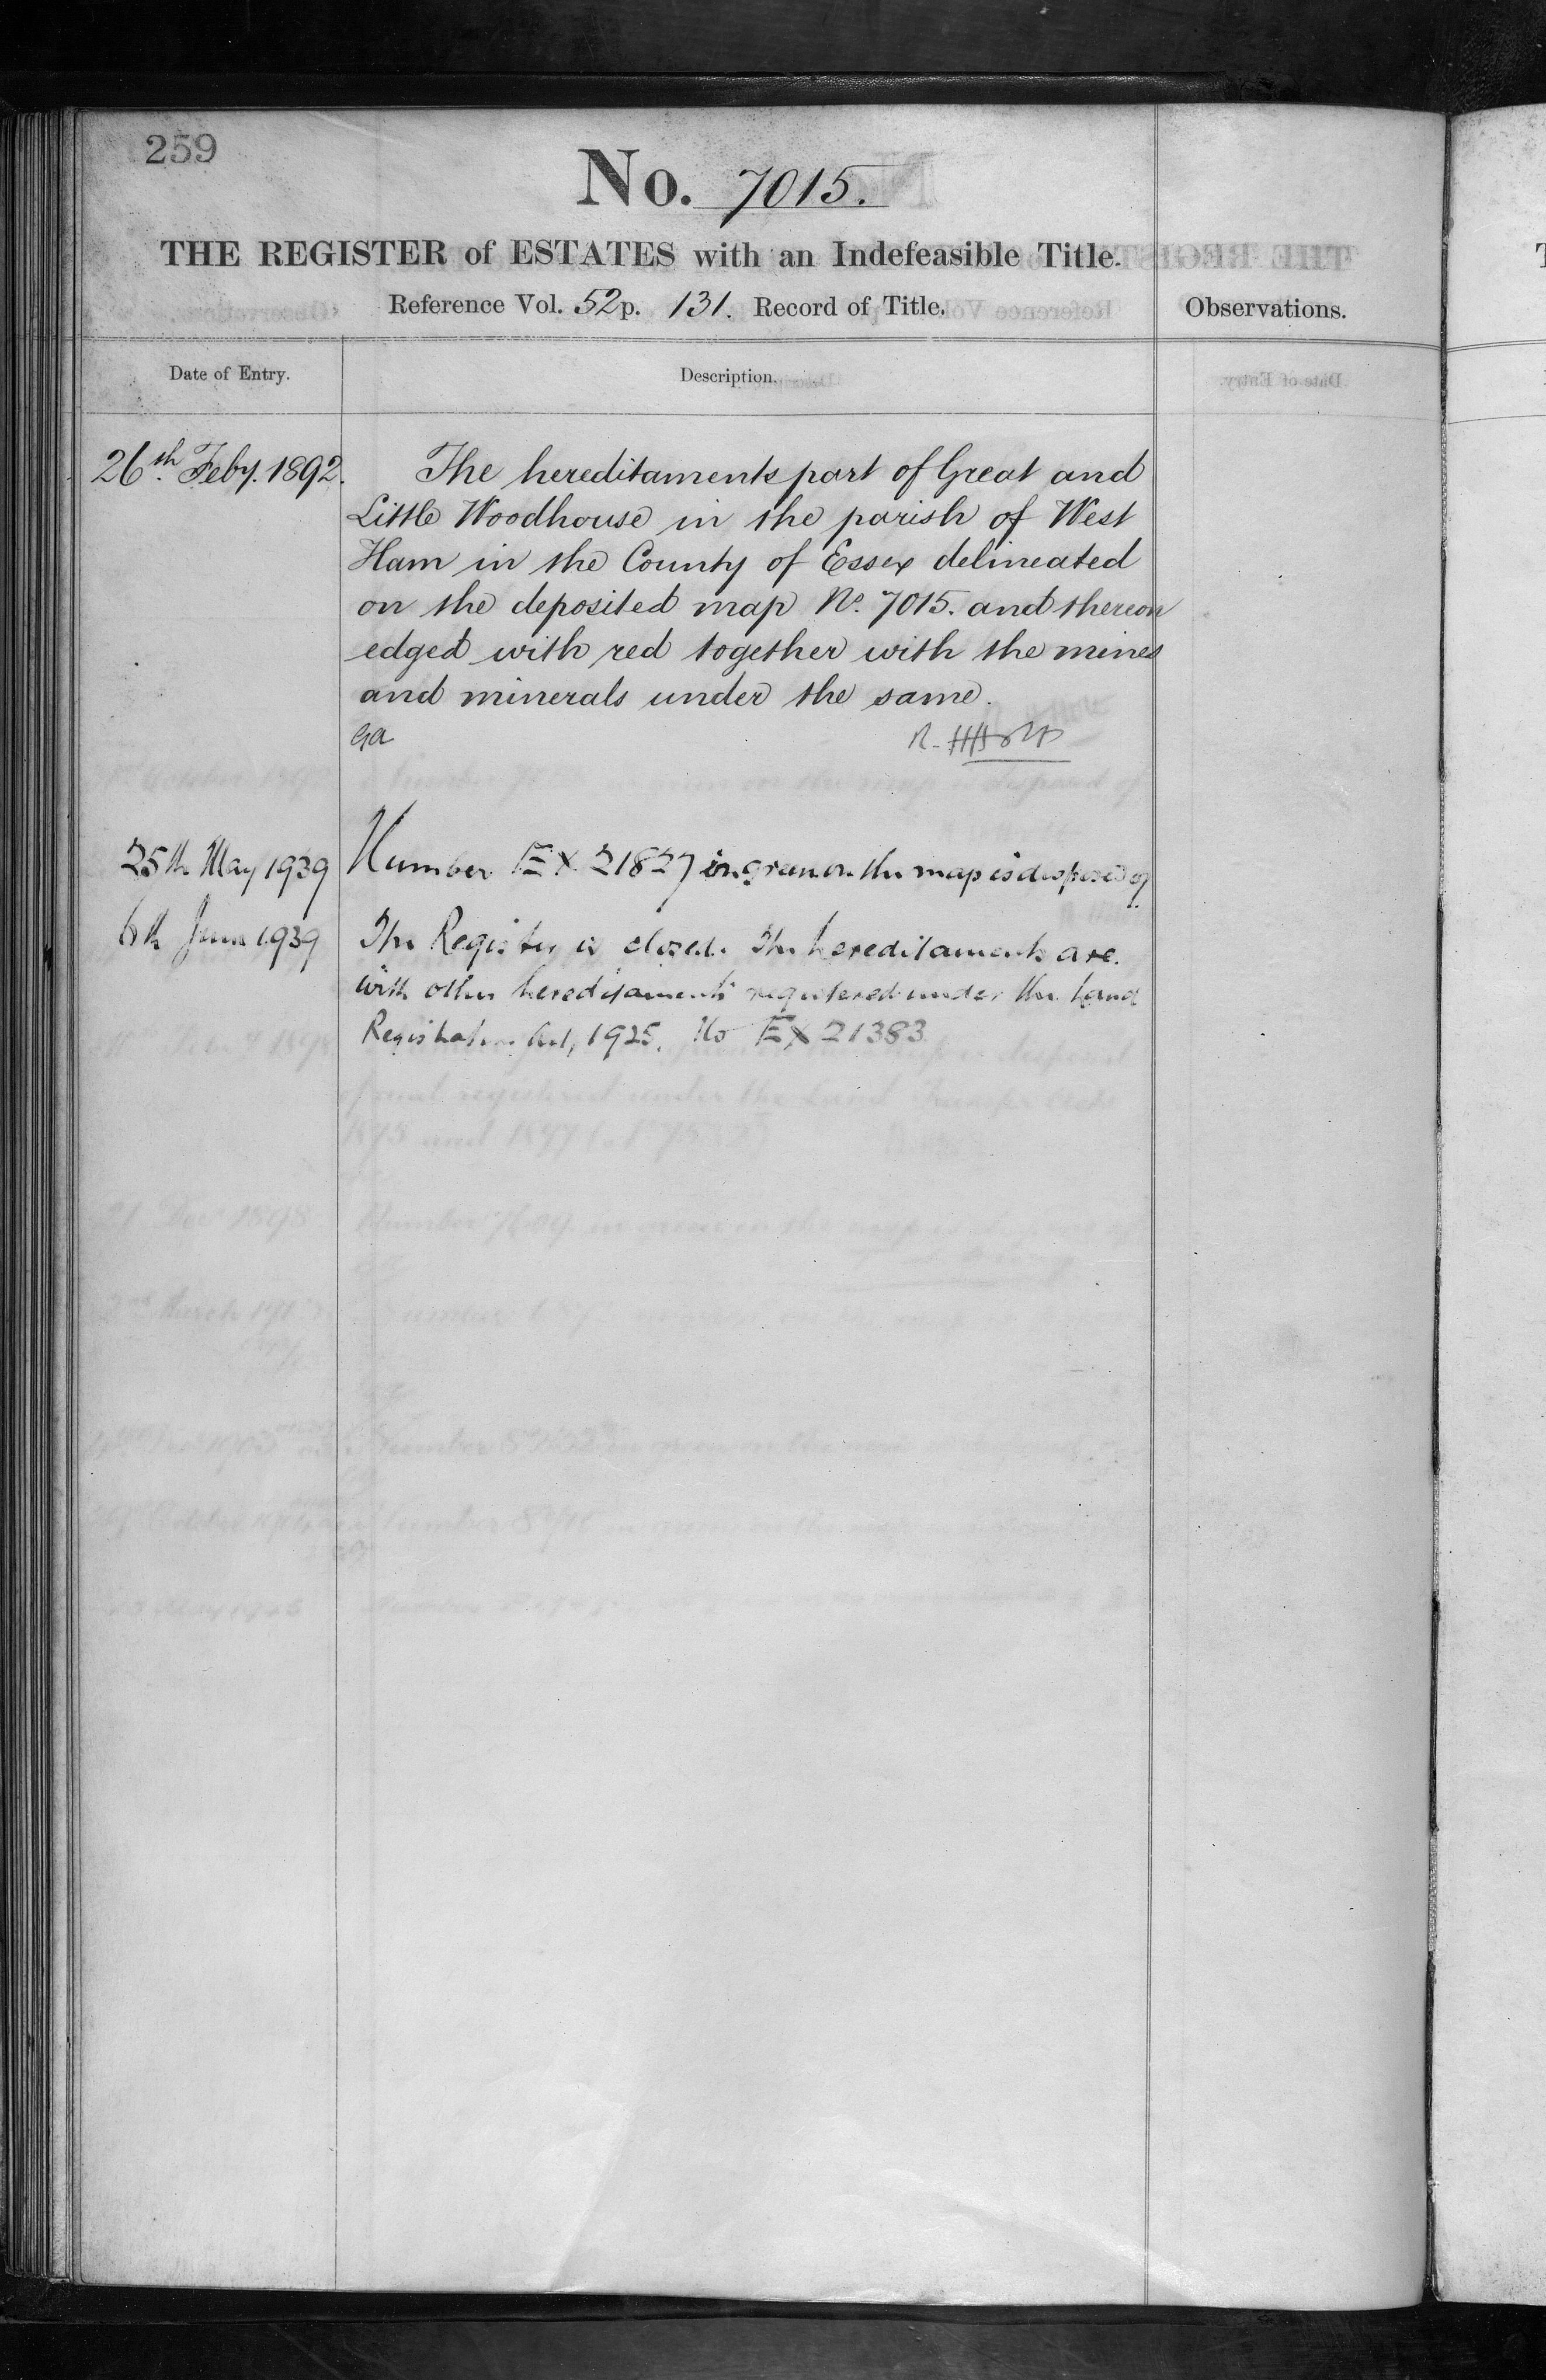 259
No. 7015.
THE REGISTER of ESTATES with an Indefeasible Title.
Reference Vol. 52 p. 131. Record of Title.
Observations.
Date of Entry.
Description.
26th Feby. 1892. The hereditaments part of Great and
Little Woodhouse in the parish of West
Ham in the County of Essex delineated
on the deposited map No. 7015. and thereon
edged with red together with the mines
and minerals under the same.
GA R. H Holt
25th May 1939 Number EX 21827 in green on the map is disposed of
6th June 1939 The Register is closed. The hereditaments are
with other hereditaments registered under the Land
Registration Act, 1925. No EX 21383